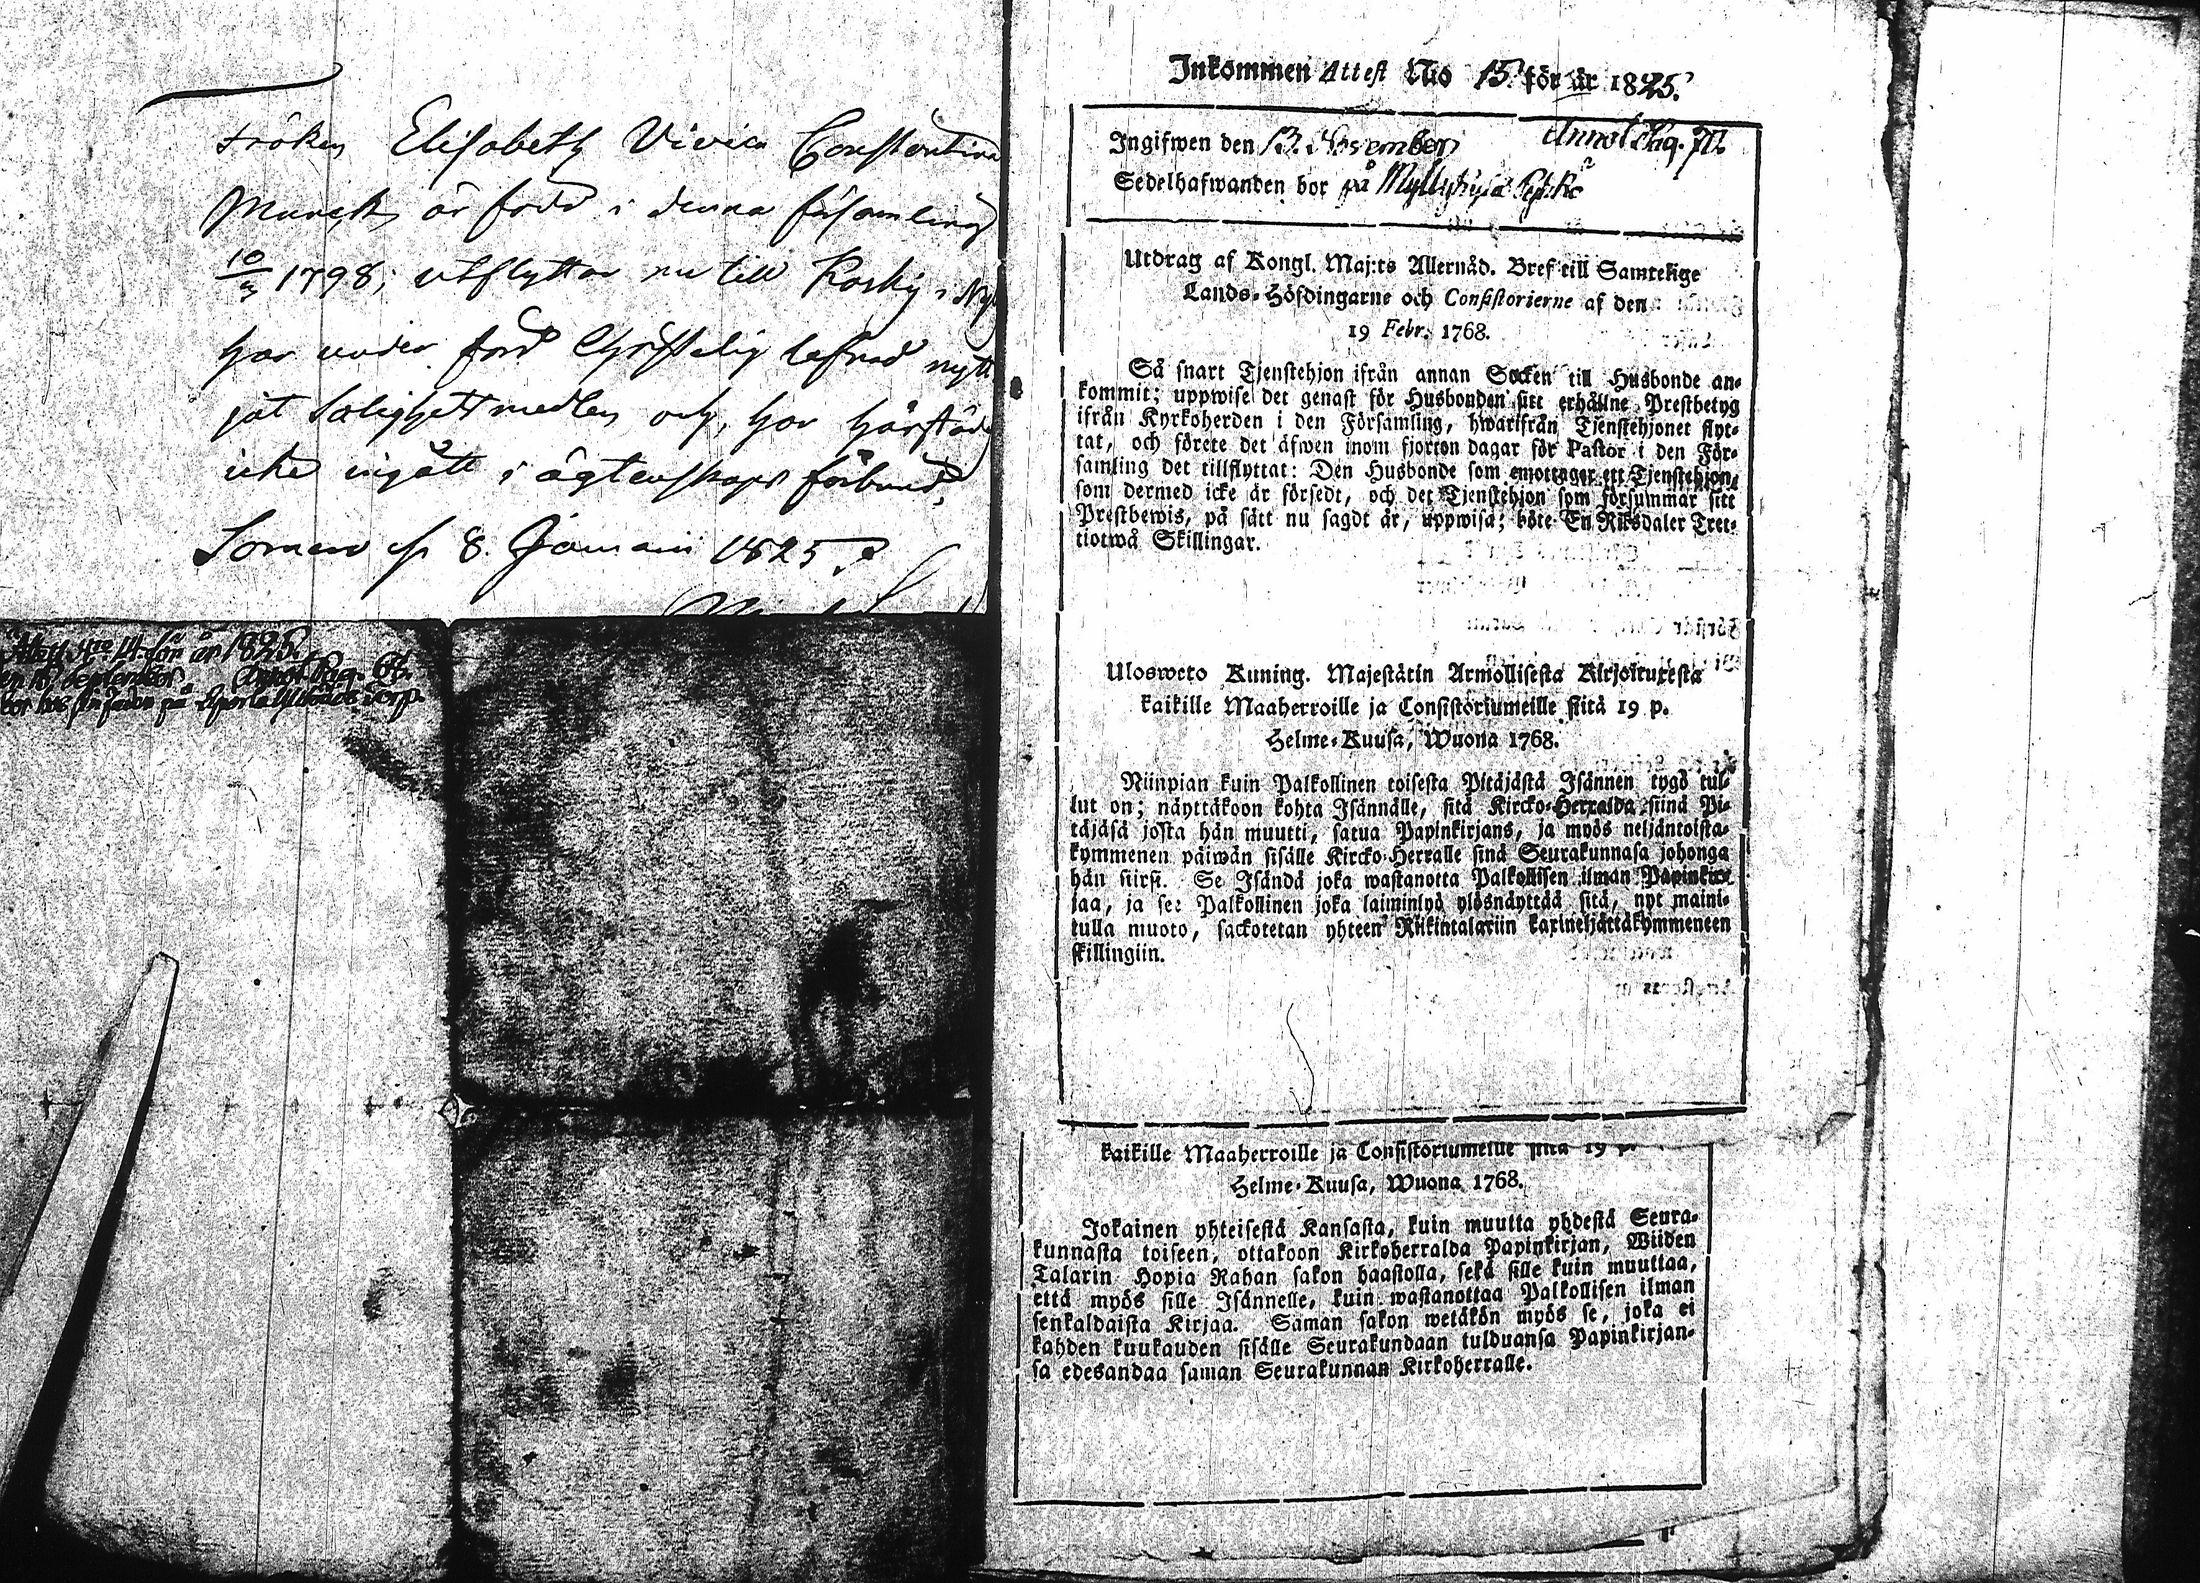 Fröken Elisabeth Vivica Constantina
Munck är född i denna församling
10/3 1798; utflyttar nu till Koskis
har under förd Christelig lefnad nytt
jat Salighetsmedlen och har härstädes
icke ingått i ägtenskaps förbund.
Somero p 8. Januarii 1825.
Attest Nro 14 för år 1825.
en 18 September Annot. Pag.
bor hos sin fader på
Inkommen Attest No 15. för år 1825.
Ingifwen den 13. November Annot. Pag. 70.
Sedelhafwanden bor på
Utdrag af Kongl. Maj:ts Allernåd. Bref till Samtelige
Lands-Höfdingarne och Consistorierne af den
19 Febr. 1768.
Så snart Tjenstehjon ifrån annan Socken till Husbonde an-
kommit; uppwise det genast för Husbonden sitt erhållne Prestbetyg
ifrån Kyrkoherden i den Församling, hwarifrån Tjenstehjonet flyt-
tat, och förete det äfwen inom fjorton dagar för Pastor i den För-
samling det tillflyttat: Den Husbonde som emottager ett Tjenstehjon,
som dermed icke är försedt, och det Tjenstehjon som försummar sitt
Prestbewis, på sätt nu sagdt är, uppwisa; böte En Riksdaler Tret-
tiotwå Skillingar.
Ulosweto Kuning. Majestätin Armollisesta Kirjoituxesta
kaikille Maaherroille ja Consistoriumeille siitä 19 p.
Helme-Kuusa, Wuona 1768.
Niinpian kuin Palkollinen toisesta Pitäjästä Isännen tygö tul-
lut on; näyttäkoon kohta Isännälle, sitä Kircko-Herralda siinä Pi-
täjäsä josta hän muutti, saatua Papinkirjans, ja myös neljäntoista-
kymmenen päiwän sisälle Kircko-Herralle sinä Seurakunnasa johonga
hän siirsi. Se Isändä joka wastanotta Palkollisen ilman Papinkir-
jaa, ja se: Palkollinen joka laiminlyö ylösnäyttää sitä, nyt maini-
tulla muoto, sackotetan yhteen Riikintalariin kaxineljättäkymmeneen
skillingiin.
kaikille Maaherroille ja Consistoriumeille siitä 19 p.
Helme-Kuusa, Wuona 1768.
Jokainen yhteisestä Kansasta, kuin muutta yhdestä Seura-
kunnasta toiseen, ottakoon Kirkoherralda Papinkirjan, Wiiden
Talarin Hopia Rahan sakon haastolla, sekä sille kuin muuttaa,
että myös sille Isännelle, kuin wastanottaa Palkollisen ilman
senkaldaista Kirjaa. Saman sakon wetäkön myös se, joka ei
kahden kuukauden sisälle Seurakundaan tulduansa Papinkirjan-
sa edesandaa saman Seurakunnan Kirkoherralle.